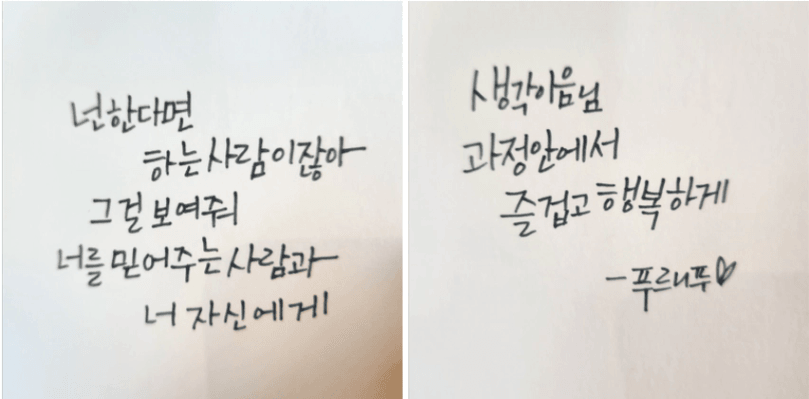 넌한다면
하는사람이잖아
그걸 보여줘
너를 믿어주는 사람과
너 자신에게
생각이음님
과정안에서
즐겁고 행복하게
-푸르니푸♡